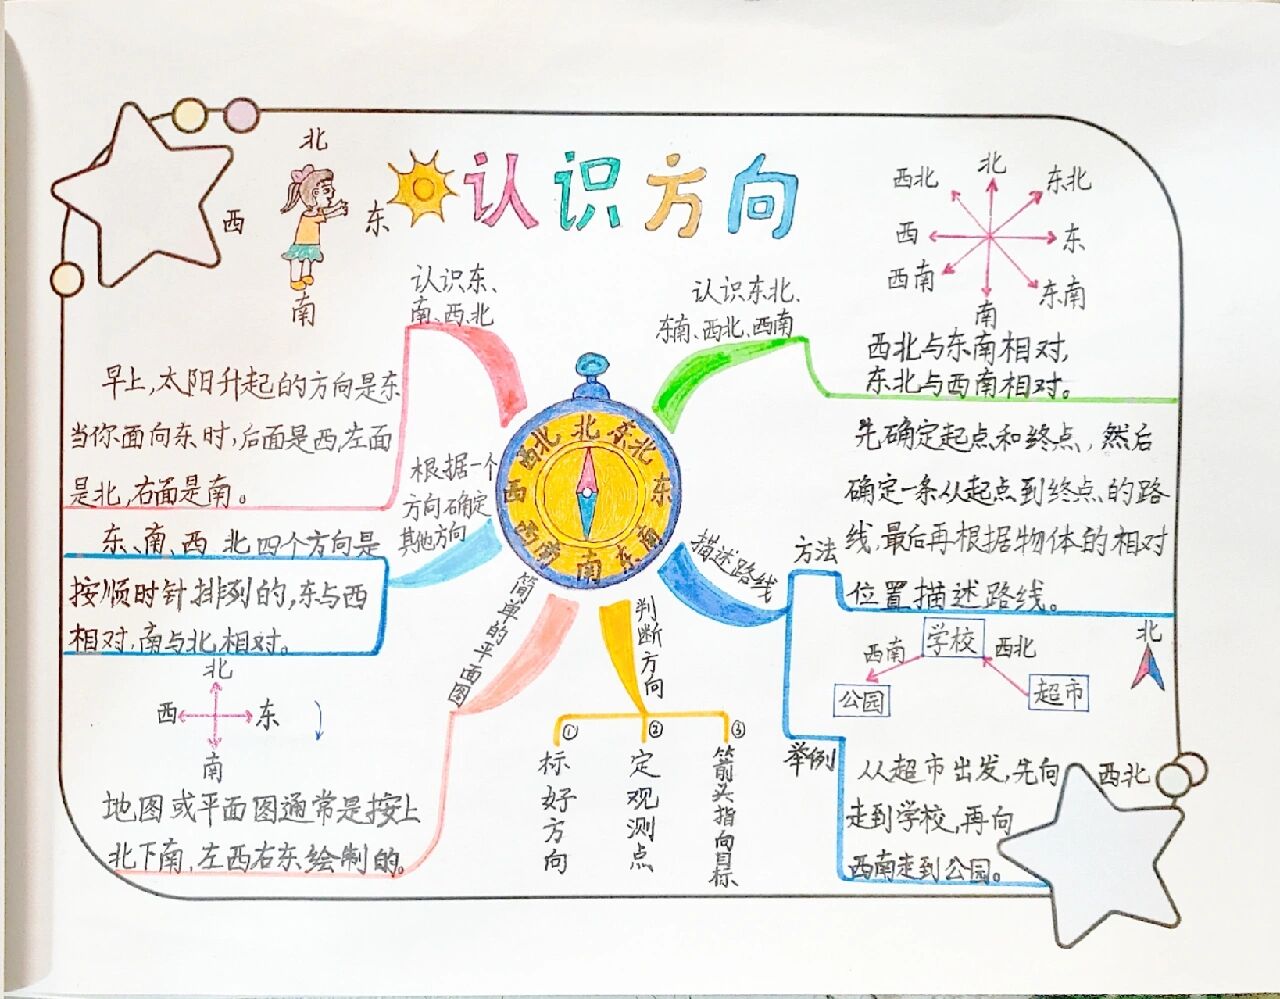 认识方向
北
西
东
南
认识东、
南、西、北
早上,太阳升起的方向是东
当你面向东时,后面是西,左面
是北,右面是南。
根据一个
方向确定
其他方向
东、南、西 北四个方向是
按顺时针排列的,东与西
相对,南与北相对。
北
西
东
南
简单的平面图
地图或平面图通常是按上
北下南,左西右东绘制的。
北
东北
东
东南
南
西南
西
西北
判断方向
①
标好方向
②
定观测点
③
箭头指向目标
认识东北、
东南、西北、西南
北
西北
东北
西
东
西南
东南
南
西北与东南相对,
东北与西南相对。
描述路线
方法
先确定起点和终点,然后
确定一条从起点到终点的路
线,最后再根据物体的相对
位置描述路线。
北
学校
西南
西北
公园
超市
举例
从超市出发,先向 西北
走到学校,再向
西南走到公园。